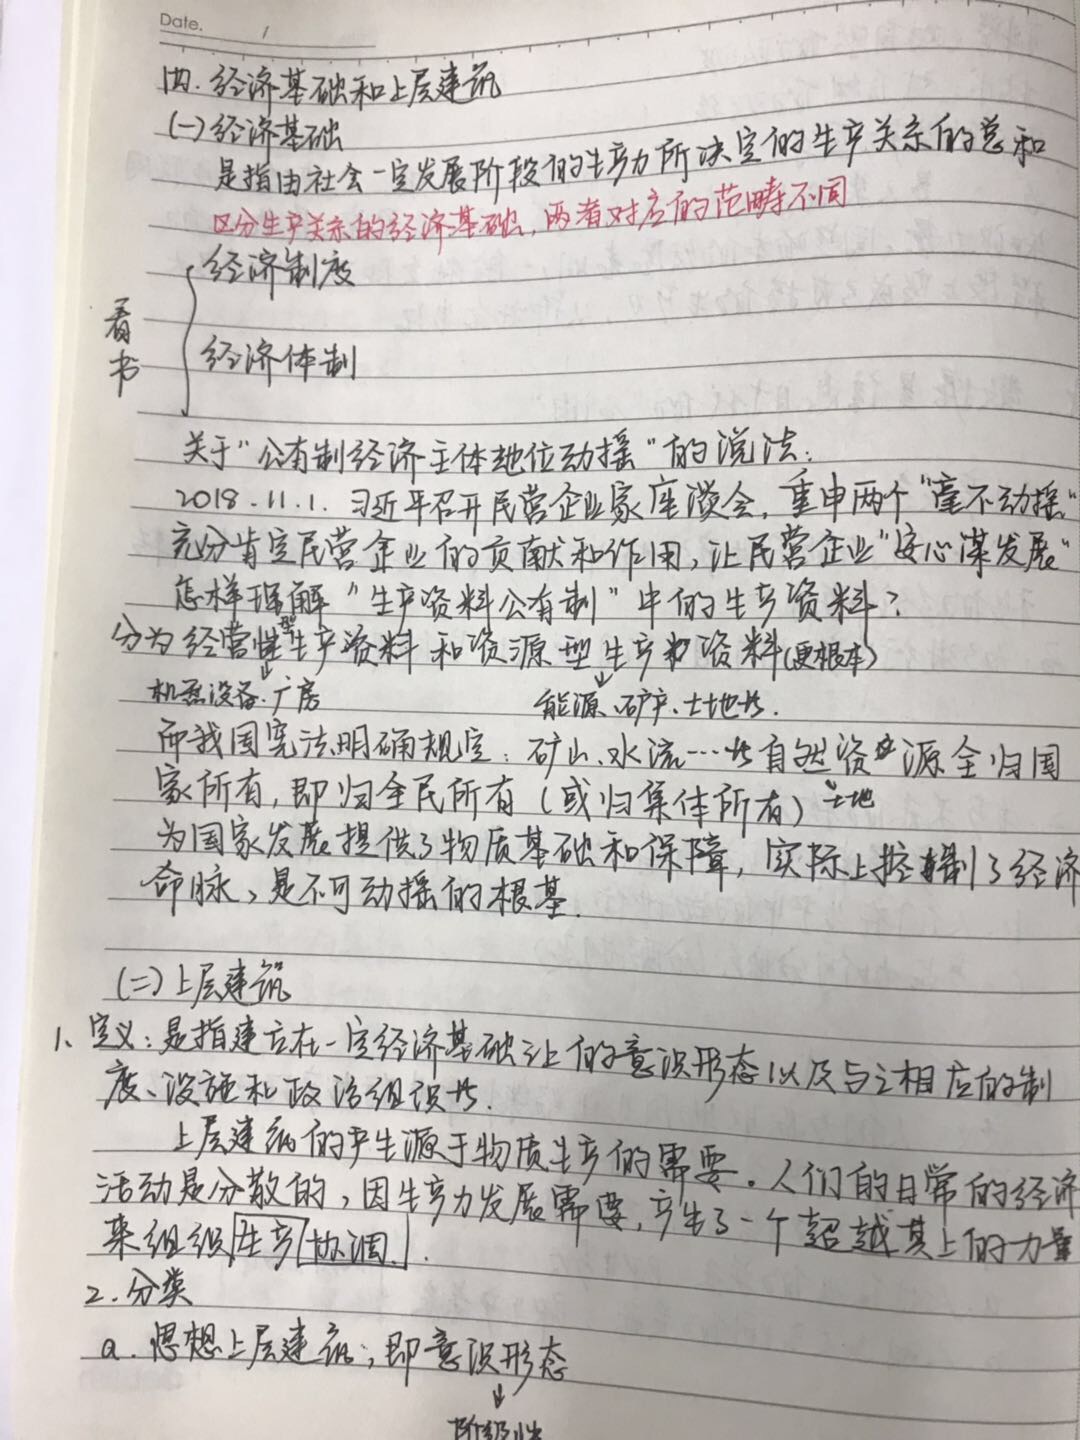 Date. /
四.经济基础和上层建筑
(一)经济基础
是指由社会一定发展阶段的生产力所决定的生产关系的总和
区分生产关系的经济基础,两者对应的范畴不同
经济制度
看书
经济体制
关于"公有制经济主体地位动摇"的说法:
2018.11.1.习近平召开民营企业家座谈会,重申两个"毫不动摇"
充分肯定民营企业的贡献和作用,让民营企业"安心谋发展"
怎样理解"生产资料公有制"中的生产资料?
分为经营性型生产资料和资源型生产资料(更根本)
机器设备.厂房 能源、矿产、土地等.
而我国宪法明确规定:矿山、水流……等自然资源全归国
家所有,即归全民所有(或归集体所有)土地
为国家发展提供了物质基础和保障,实际上控制了经济
命脉,是不可动摇的根基.
(二)上层建筑
1、定义:是指建立在一定经济基础之上的意识形态以及与之相应的制
度、设施和政治组织等.
上层建筑的产生源于物质生产的需要。人们的日常的经济
活动是分散的,因生产力发展需要,产生了一个超越其上的力量
来组织生产协调.
2.分类
a.思想上层建筑;即意识形态
阶级性